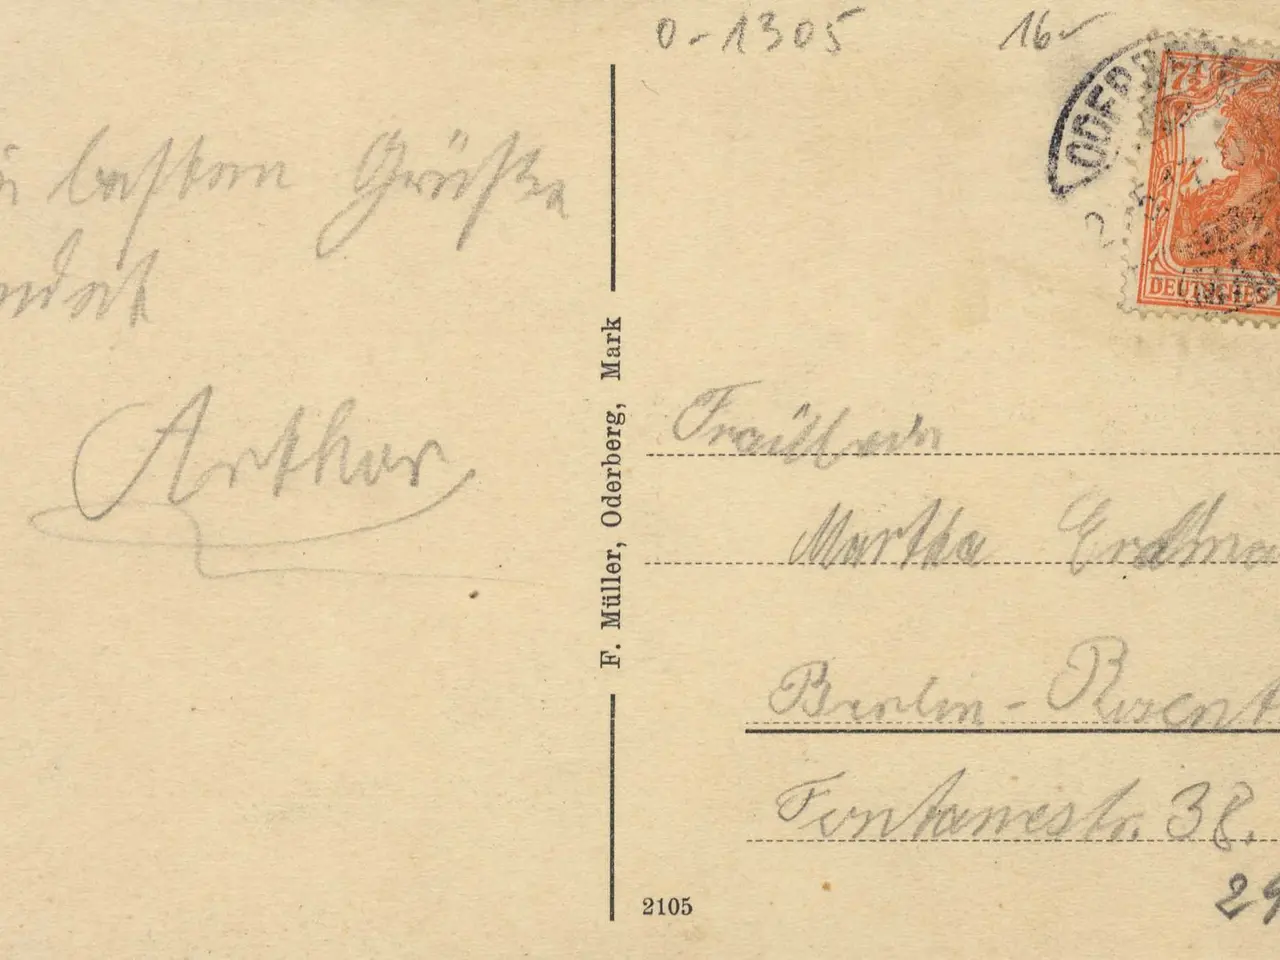 besten Grüße
sendet
Arthur
F. Müller, Oderberg, Mark
2105
0-1305
16-
ODERBE
7½
DEUTSCHES
Fräulein
Martha Erdma
Berlin-Rosent
Fontanestr. 38.
29